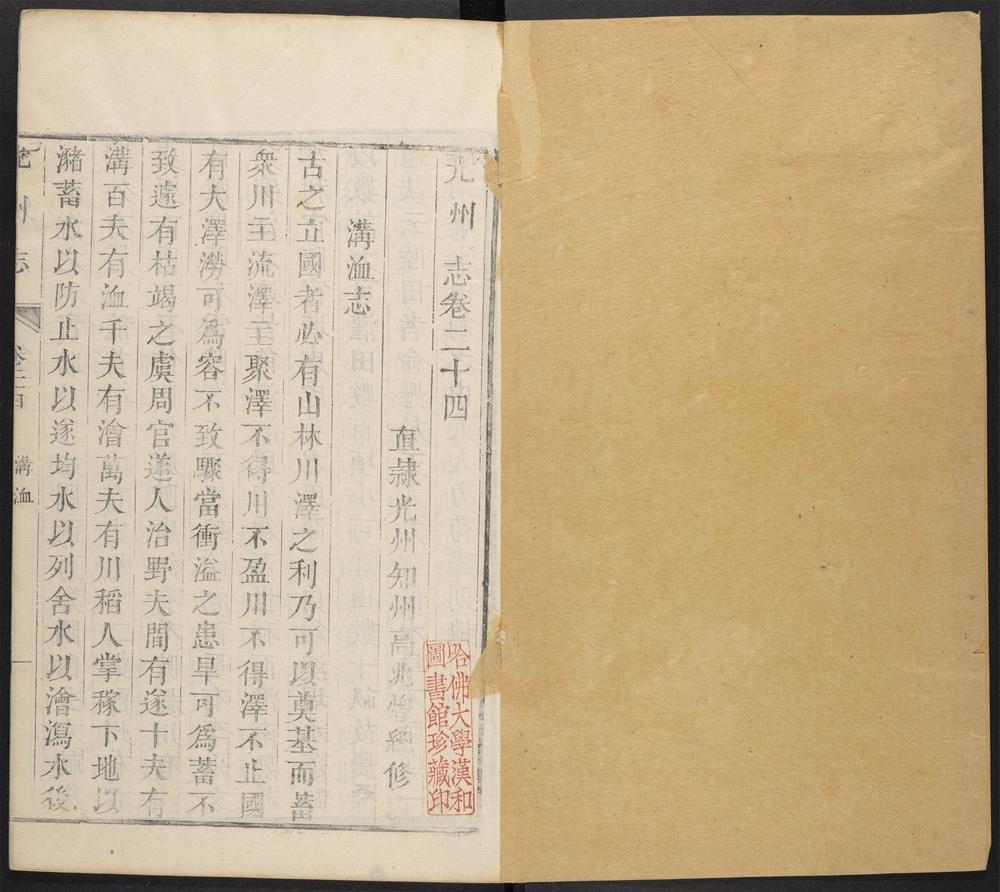 光州志卷二十四
直隸光州知州高兆煌纂修
溝洫志
古之立國者必有山林川澤之利乃可以奠基而蓄
衆川主流澤主聚澤不得川不盈川不得澤不止國
有大澤澇可爲容不致驟當衝溢之患旱可爲蓄不
致遽有枯竭之虞周官遂人治野夫間有遂十夫有
溝百夫有洫千夫有澮萬夫有川稻人掌稼下地以
瀦蓄水以防止水以遂均水以列舍水以澮瀉水後
光州志
卷二十四
溝洫
一
哈佛大學漢和
圖書館珍藏印